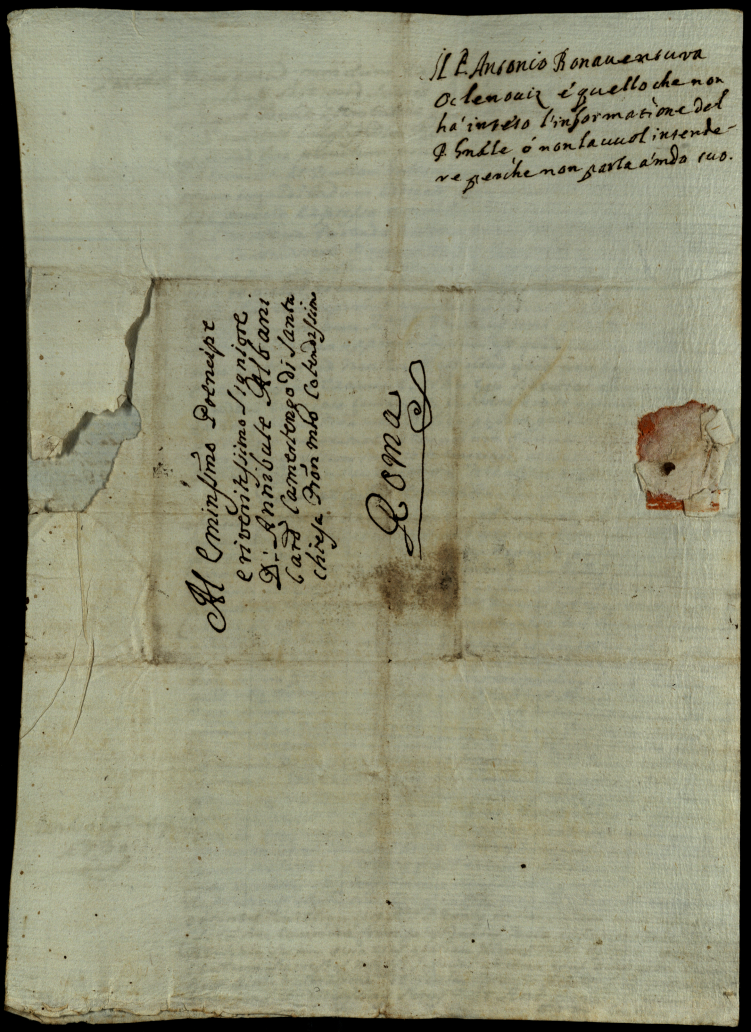 Il P Antonio Bonaventura
Oclenouiz é quello che non
há inteso l'informatione del
P Gn͠ale ó non la vuol intende-
re perche non parla á mdo suo.
Al Emin͠smo Prencipe
e riveritissimo Signiore
D: Annibale Albani
Card Camerlengo di Santa
Chiesa Pron mio Colendissimo
Roma